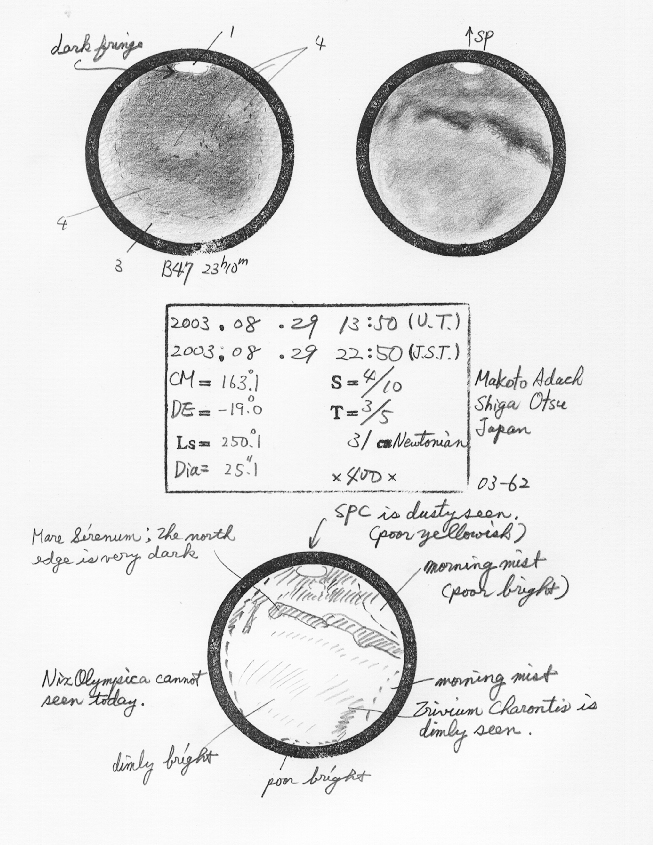 dark fringe
1
4
↑SP
4
3
B47 23h10m
2003. 08 .29 13:50 (U.T.)
2003; 08 .29 22:50 (J.S.T.)
CM = 163.°1
S = 4/10
DE = -19.°0
T = 3/5
Ls = 250.°1
31 cm Newtonian
Dia = 25."1
×400×
Makoto Adach
Shiga Otsu
Japan
03-62
SPC is dusty seen.
(poor yellowish)
Mare Sirenum; The north
edge is very dark
morning mist
(poor bright)
Nix Olympica cannot
seen today.
morning mist
Trivium Charontis is
dimly seen.
dimly bright
poor bright